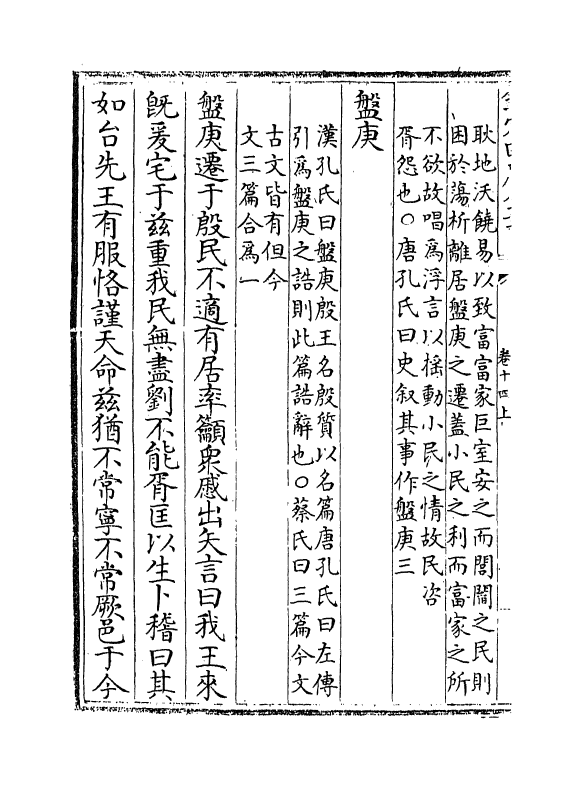 卷十四上
耿地沃饒易以致富富家巨室安之而閭閻之民則
困於蕩析離居盤庚之遷蓋小民之利而富家之所
不欲故唱為浮言以搖動小民之情故民咨
胥怨也○唐孔氏曰史叙其事作盤庚三
盤庚
漢孔氏曰盤庚殷王名殷質以名篇唐孔氏曰左傳
引為盤庚之誥則此篇誥辭也○蔡氏曰三篇今文
古文皆有但今
文三篇合為一
盤庚遷于殷民不適有居率籲衆慼出矢言曰我王來
既爰宅于兹重我民無盡劉不能胥匡以生卜稽曰其
如台先王有服恪謹天命兹猶不常寧不常厥邑于今